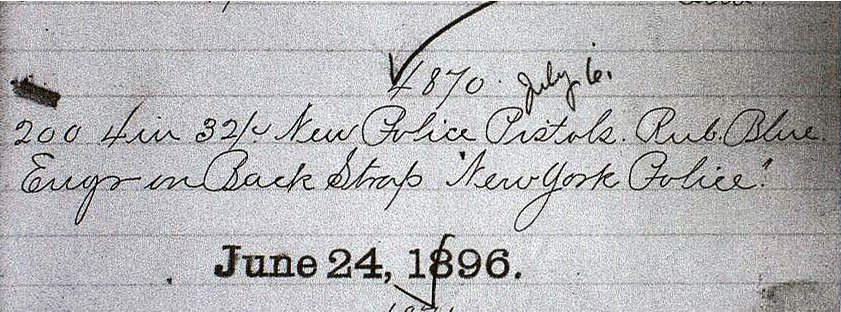 4870. July 6.
200 4in 32/c New Police Pistols. Rub. Blue.
Engr on Back Strap "New York Police".
June 24, 1896.